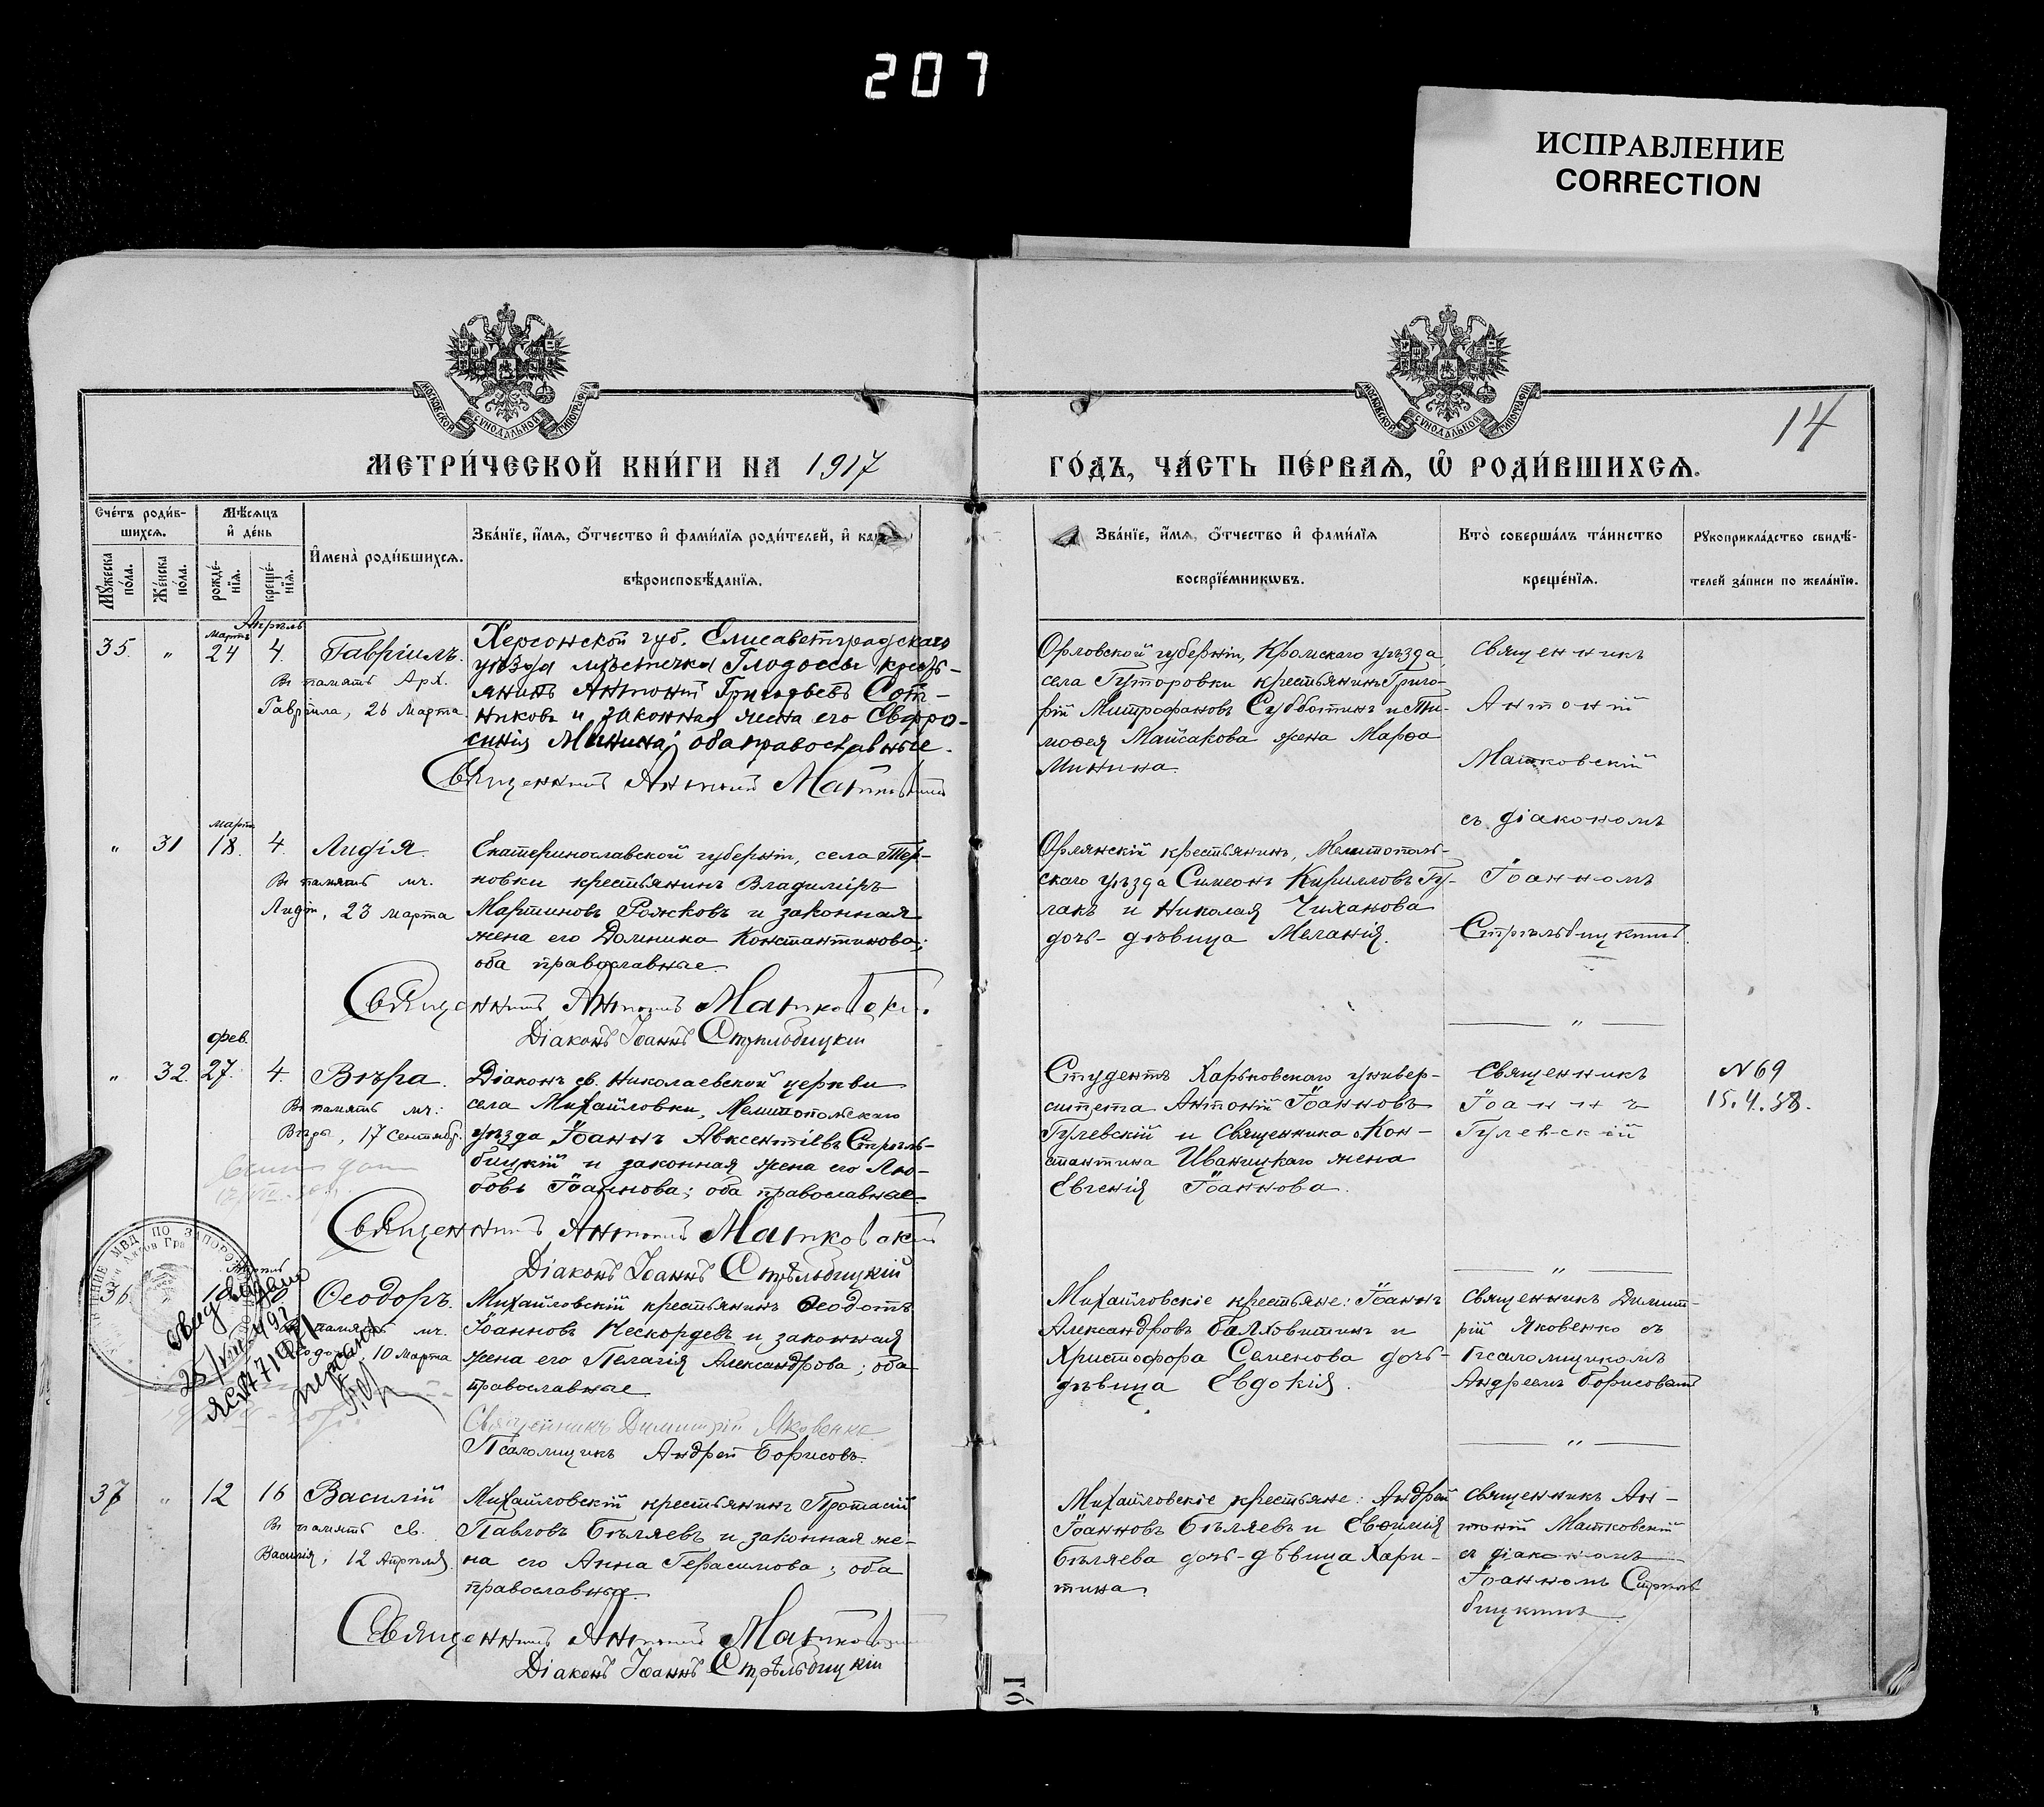 207
ИСПРАВЛЕНИЕ
CORRECTION
МОСКОВСКОЙ СѴНОДАЛЬНОЙ ТИПОГРАФІИ
МОСКОВСКОЙ СѴНОДАЛЬНОЙ ТИПОГРАФІИ
14
МЕТРИ́ЧЕСКОЙ КНИ́ГИ НА 1917
ГО́ДЪ, ЧА́СТЬ ПЕ́РВАЯ, Ѡ҆ РОДИ́ВШИХСЯ.
Сче́тъ роди́в-
шихся.
Мѣ́сяцъ
и҆ де́нь
Мꙋ́жеска по́ла.
Же́нска по́ла.
рожде́-нїя.
креще́-нїя.
И҆мена̀ роди́вшихся.
Зва́нїе, и҆́мя, ѻ҆́тчество и҆ фами́лїя роди́телей, и҆
вѣроисповѣ́данїя.
Зва́нїе, и҆́мя, ѻ҆́тчество и҆ фами́лїя
воспрїе́мникѡвъ.
Кто̀ соверша́лъ та́инство
креще́нїя.
Рꙋкоприкла́дство свидѣ́-
телей за́писи по жела́нїю.
Апрѣль
Мартъ
35. " 24 4. Гавріилъ.
Въ память Арх.
Гавріила, 26 Марта
Херсонской губ. Елисаветградскаго
уѣзда мѣстечка Глодоссы кресть-
янинъ Антоній Григорьевъ Сот-
никовъ и законная жена его Евфро-
синія Минина; оба православные.
Священникъ Антоній Матковскій
Орловской губерніи, Кромскаго уѣзда,
села Гуторовки крестьянинъ Григо-
рій Митрофановъ Субботинъ и Ти-
моѳея Майсакова жена Марѳа
Минина.
Священникъ
Антоній
Матковскій
съ діакономъ
Іоанномъ
Стрѣльбицкимъ.
мартъ
" 31 18. 4. Лидія.
Въ память мч.
Лидіи, 23 марта
Екатеринославской губерніи, села Тер-
новки крестьянинъ Владиміръ
Мартиновъ Рожковъ и законная
жена его Домника Константинова;
оба православные.
Священникъ Антоній Матковскій.
Діаконъ Іоаннъ Стрѣльбицкій
Орлянскій крестьянинъ, Мелитополь-
скаго уѣзда Симеонъ Кирилловъ Гу-
лакъ и Николая Чиханова
дочь-дѣвица Меланія.
"
фев.
" 32. 27. 4. Вѣра.
Въ память мч:
Вѣры, 17 Сентябр.
Діаконъ св. Николаевской церкви
села Михайловки, Мелитопольскаго
уѣзда Іоаннъ Авксентіевъ Стрѣль-
бицкій и законная жена его Лю-
бовь Іоаннова; оба православные.
Священникъ Антоній Матковскій
Діаконъ Іоаннъ Стрѣльбицкій
Студентъ Харьковскаго универ-
ситета Антоній Іоанновъ
Гулевскій и Священника Кон-
стантина Иваницкаго жена
Евгенія Іоаннова.
Священникъ
Іоаннъ
Гулевскій
"
N 69
15.4.58.
МВД ПО
36 Ѳеодоръ.
память мч.
10 Марта
Михайловскій крестьянинъ Ѳеодотъ
Іоанновъ Нескордевъ и законная
жена его Пелагія Александрова; оба
православные.
Священникъ Димитрій Яковенко
Псаломщикъ Андрей Борисовъ.
Михайловскіе крестьяне: Іоаннъ
Александровъ Балховитинъ и
Христофора Семенова дочь-
дѣвица Евдокія.
Священникъ Димит-
рій Яковенко съ
Псаломщикомъ
Андреемъ Борисовымъ
"
37 " 12 16 Василій
Въ память св.
Василія, 12 Апрѣля.
Михайловскій крестьянинъ Протасій
Павловъ Бѣляевъ и законная же-
на его Анна Герасимова; оба
православные.
Священникъ Антоній Матковскій
Діаконъ Іоаннъ Стрѣльбицкій
Михайловскіе крестьяне: Андрей
Іоанновъ Бѣляевъ и Евѳимія
Бѣляева дочь-дѣвица Хари-
тина.
Священникъ Ан-
тоній Матковскій
съ діакономъ
Іоанномъ Стрѣль
бицкимъ
го́